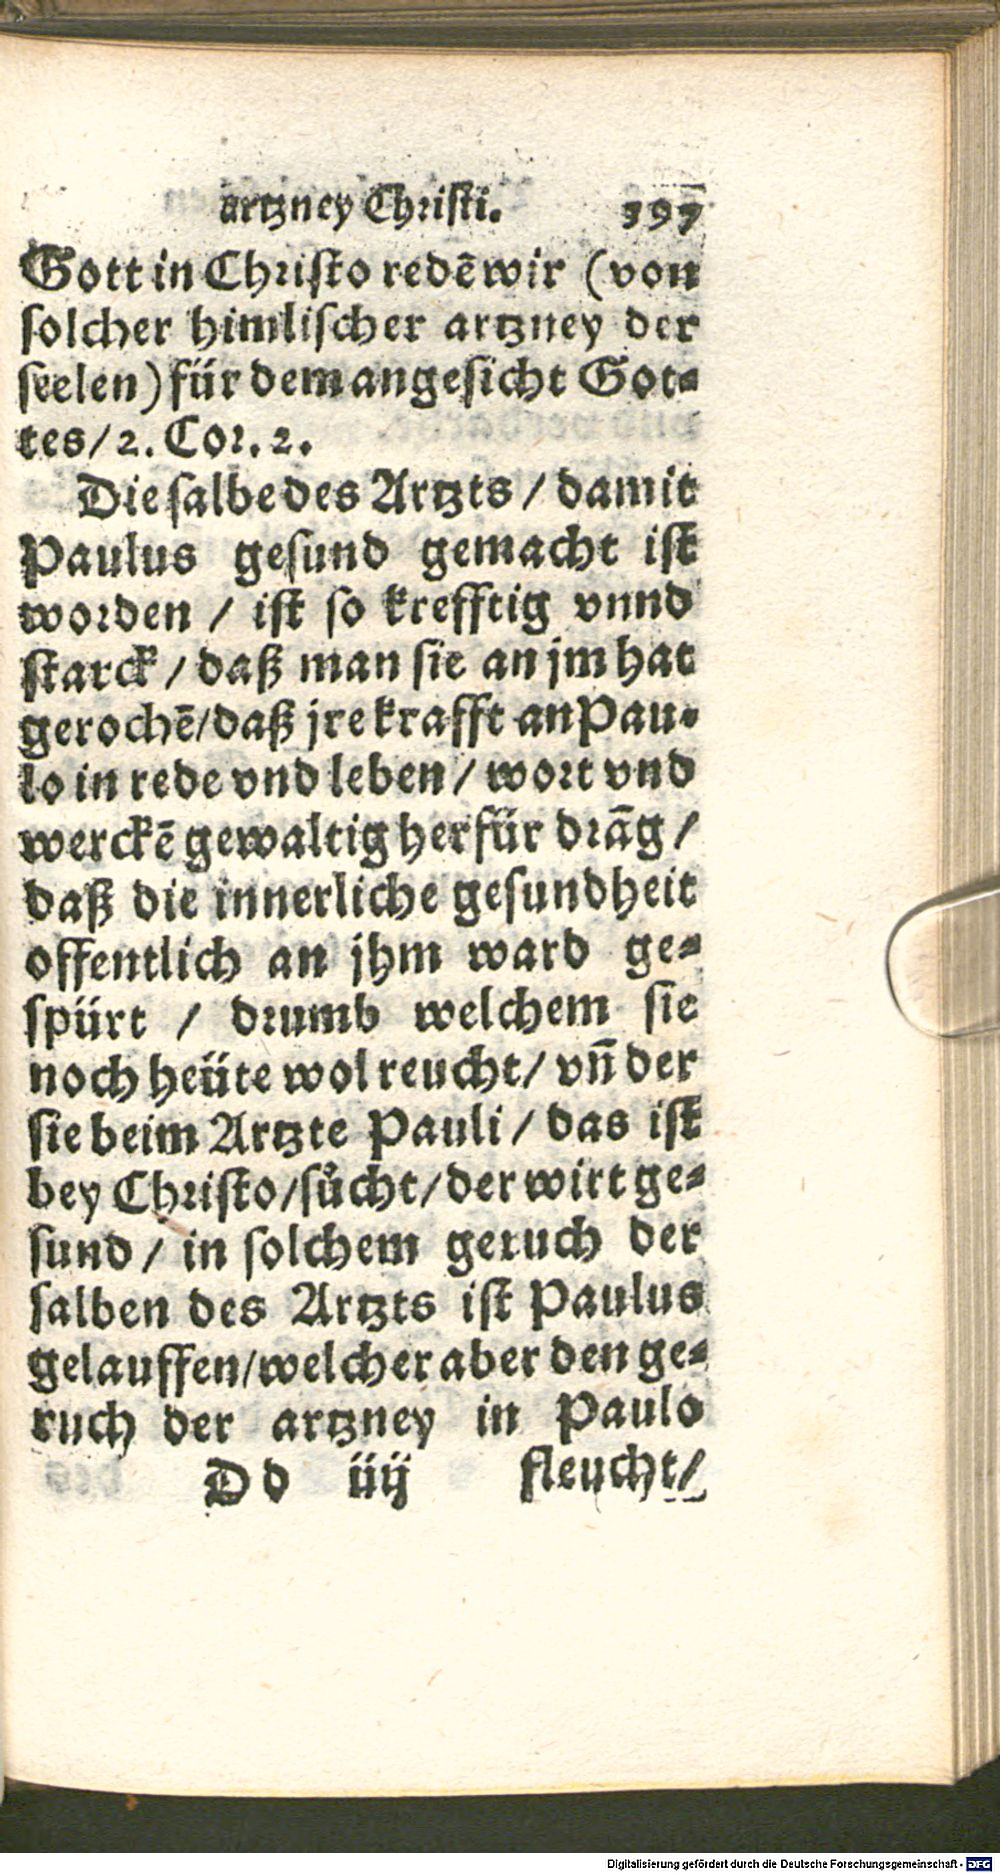 artzney Christi. 397
Gott in Christo redē wir (von
solcher himlischer artzney der
seelen) für dem angesicht Got-
tes/2. Cor. 2.
Die salbe des Artzts / damit
Paulus gesund gemacht ist
worden / ist so krefftig vnnd
starck / daß man sie an jm hat
gerochē/daß jre krafft an Pau-
lo in rede vnd leben / wort vnd
werckē gewaltig herfür drāg /
daß die innerliche gesundheit
offentlich an jhm ward ge-
spürt / drumb welchem sie
noch heüte wol reucht/ vn̄ der
sie beim Artzte Pauli / das ist
bey Christo/suͦcht/der wirt ge-
sund / in solchem geruch der
salben des Artzts ist Paulus
gelauffen/welcher aber den ge-
ruch der artzney in Paulo
Dd iiij fleucht/
Digitalisierung gefördert durch die Deutsche Forschungsgemeinschaft - DFG